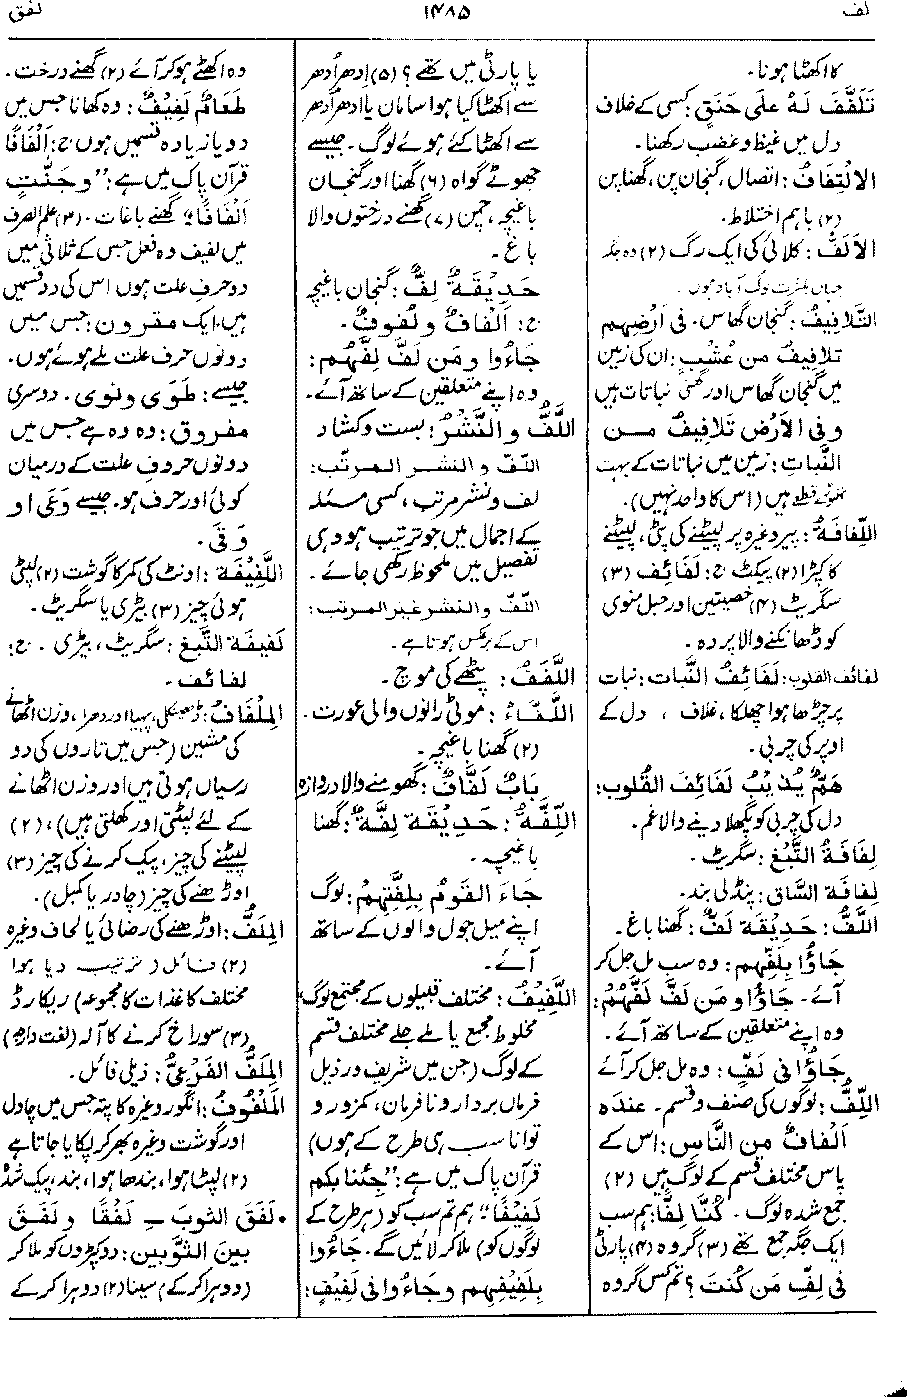 لف ۱۴۸۵ لفق
کا اکھٹا ہونا۔
تَلَفَّفَ لَہٗ علٰی حَنَقٍ: کسی کے خلاف
دل میں غیظ و غضب رکھنا۔
الالْتِفَافُ: اتصال، گنجان پن، گھنا پن
(۲) باہم اختلاط۔
الاَلَفُّ: کلائی کی ایک رگ (۲) وہ جگہ
جہاں بکثرت لوگ آباد ہوں۔
التَّلافِیفُ: گنجان گھاس۔ فی اَرْضِہم
تلافِیفُ من عُشْبٍ: ان کی زمین
میں گنجان گھاس اور گھنی نباتات ہیں
وفی الاَرْضِ تَلافِیفُ مــن
النَّباتِ: زمین میں نباتات کے بہت
قطعے ہیں (اس کا واحد نہیں)۔
اللِّفَافَۃُ: پیر وغیرہ پر لپیٹنے کی پٹی، لپیٹنے
کا کپڑا (۲) پیکٹ ج: لَفَائِف (۳)
سگریٹ (۴) خصیتین اور حبل منوی
کو ڈھانکنے والا پردہ۔
لفائف القلوب: لَفَائِفُ النَّبات: نبات
پر چڑھا ہوا چھلکا، غلاف ، دل کے
اوپر کی چربی۔
ھَمٌّ یُذِیْبُ لَفَائِفَ القُلوبِ:
دل کی چربی کو پگھلا دینے والا غم۔
لِفَافَۃُ التَّبْغِ: سگریٹ۔
لِفافۃ السَّاق: پنڈلی بند۔
اللَّفُّ: حَدِیْقَۃ لَفٌّ: گھنا باغ۔
جَاؤُا بِلَفِّہِم: وہ سب مل جل کر
آئے۔ جَاؤُا و مَن لَفَّ لَفَّھُمْ:
وہ اپنے متعلقین کے ساتھ آئے۔
جَاؤُا فی لَفٍّ: وہ مل جل کر آئے
اللِّفُّ: لوگوں کی صنف و قسم۔ عندَہ
اَلْفَافٌ مِن النَّاسِ: اس کے
پاس مختلف قسم کے لوگ ہیں (۲)
جمع شدہ لوگ۔ کُنَّا لِفًّا: ہم سب
ایک جگہ جمع تھے (۳) گروہ (۴) پارٹی
فی لِفِّ مَن کُنْتَ؟ تم کس گروہ
یا پارٹی میں تھے؟ (۵) اِدھر اُدھر
سے اکھٹا کیا ہوا سامان یا ادھر اُدھر
سے اکھٹا کئے ہوئے لوگ۔ جیسے
جھوٹے گواہ (۶) گھنا اور گنجان
باغیچہ، چمن (۷) گھنے درختوں والا
باغ۔
حَدِیْقَۃٌ لِفٌّ: گنجان باغیچہ
ج: اَلْفَافٌ و لُفوفٌ۔
جَاءُوا و مَن لَفَّ لِفَّہُم:
وہ اپنے متعلقین کے ساتھ آئے۔
اللَّفُّ والنَّشْرُ: بست و کشاد
اللّفّ والنشر المرتَّب:
لف و نشر مرتب، کسی مسئلہ
کے اجمال میں جو ترتیب ہو وہی
تفصیل میں ملحوظ رکھی جائے۔
اللّفّ والنشر غیر المرتب:
اس کے برعکس ہوتا ہے۔
اللَّفَفُ: پٹھے کی موچ۔
اللَّفَّاءُ: موٹی رانوں والی عورت۔
(۲) گھنا باغیچہ۔
بَابٌ لَفَّافٌ: گھومنے والا دروازہ
اللِّفَّۃُ: حَدِیقَۃ لِفَّۃٌ: گھنا
باغیچہ۔
جَاءَ القَوْمُ بِلِفَّتِہِمْ: لوگ
اپنے میل جول والوں کے ساتھ
آئے۔
اللَّفِیْفُ: مختلف قبیلوں کے مجتمع لوگ
مخلوط مجمع یا ملے جلے مختلف قسم
کے لوگ (جن میں شریف و رذیل
فرماں بردار و نافرمان، کمزور و
توانا سب ہی طرح کے ہوں)
قرآن پاک میں ہے: "جِئْنا بکم
لَفِیْفًا" ہم تم سب کو (ہر طرح کے
لوگوں کو) ملا کر لائیں گے۔ جَاءُوا
بِلَفِیْفِہِم وجَاءُوا فی لَفِیْفٍ:
وہ اکٹھے ہو کر آئے (۲) گھنے درخت۔
طَعَامٌ لَفِیْفٌ: وہ کھانا جس میں
دو یا زیادہ قسمیں ہوں ج: اَلْفَافًا
قرآن پاک میں ہے: "وجَنّٰتٍ
اَلْفَافًا" گھنے باغات۔ (۳) علم الصرف
میں لفیف وہ فعل جس کے ثلاثی میں
دو حرف علت ہوں اس کی دو قسمیں
ہیں، ایک مقرون: جس میں
دونوں حرف علت ملے ہوئے ہوں۔
جیسے: طَوٰی و نوٰی۔ دوسری
مفروق: وہ وہ ہے جس میں
دونوں حروفِ علت کے درمیان
کوئی اور حرف ہو۔ جیسے وَعَی او
وَقَی۔
اللَّفِیْفَۃ: اونٹ کی کمر کا گوشت (۲) لپٹی
ہوئی چیز (۳) بیڑی یا سگریٹ۔
لَفِیفَۃ التَّبْغ: سگریٹ، بیڑی۔ ج:
لفائف۔
المِلْفَافُ: ڈھینکل، پہیا اور دھرا، وزن اٹھانے
کی مشین (جس میں تاروں کی دو
رسیاں ہوتی ہیں اور وزن اٹھانے
کے لئے لپٹتی اور کھلتی ہیں)، (۲)
لپیٹنے کی چیز، پیک کرنے کی چیز (۳)
اوڑھنے کی چیز (چادر یا کمبل)۔
المِلَفُّ: اوڑھنے کی رضائی یا لحاف وغیرہ
(۲) فائل (ترتیب دیا ہوا
مختلف کاغذات کا مجموعہ) ریکارڈ
(۳) سوراخ کرنے کا آلہ (لغت دارجہ)
المِلَفُّ الفَرْعِیُّ: ذیلی فائل۔
المَلْفُوفُ: انگور وغیرہ کا پتہ جس میں چاول
اور گوشت وغیرہ بھر کر پکایا جاتا ہے
(۲) لپٹا ہوا، بندھا ہوا، بند، پیک شدہ
• لَفَقَ الثوبَ ــِ لَفْقًا و لَفَّقَ
بینَ الثَّوْبین: دو کپڑوں کو ملا کر
(دوہرا کر کے) سینا (۲) دوہرا کر کے